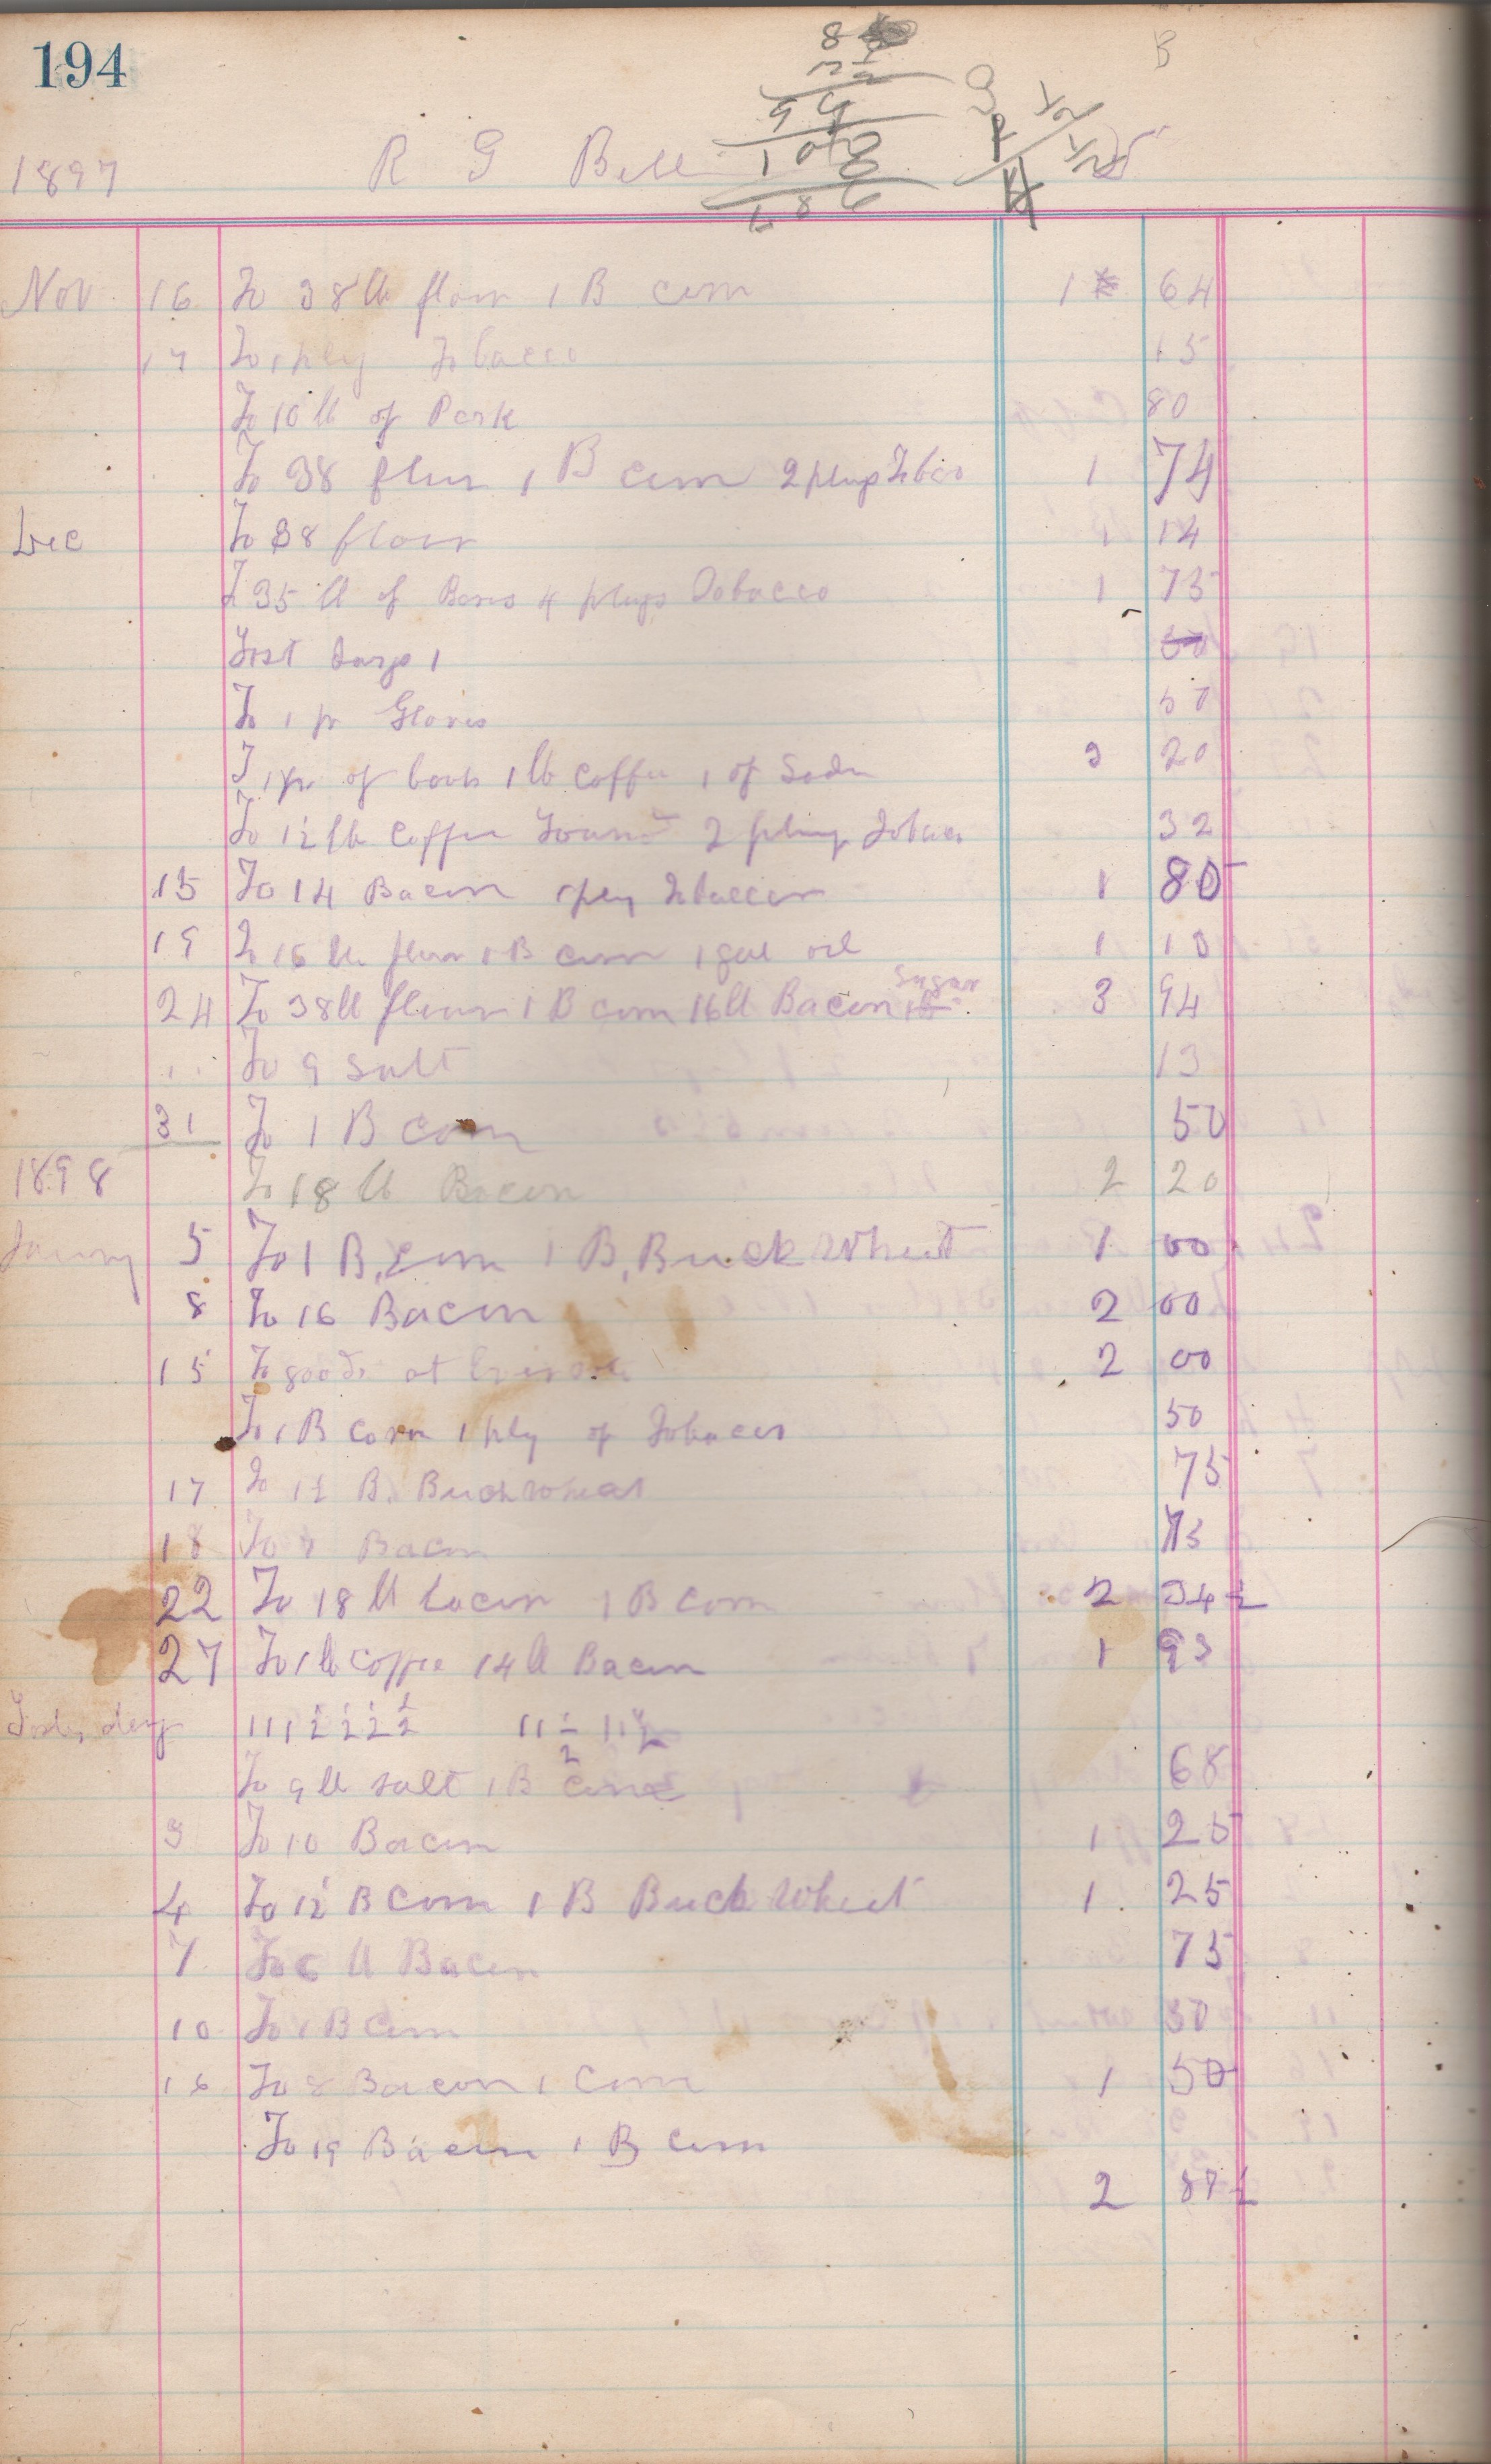 194
B
1897 R G Bell
Nov 16 To 38 lb flour 1 B corn 1 64
17 To 1 plug Tobacco 15
To 10 lb of Pork 80
To 38 flour 1 B corn 2 plug Tobac 1 74
Dec To 38 flour 1 14
T 35 lb of 4 plugs Tobacco 1 75
Lost 1 50
To 1 pr Gloves 50
T 1 pr of boots 1 lb Coffee 1 of Soda 20
To 1½ lb Coffee 2 plug Tobaco 32
15 To 14 Bacon 1 plug Tobaccor 1 80
19 To 16 lb flour 1 B corn 1 gal oil 1 10
24 To 38 lb flour 1 B corn 16 lb Bacon Sugar 3 94
" To 9 Salt 13
31 To 1 B corn 50
1898 To 18 lb Bacon 2 20
January 5 To 1 B, corn 1 B, Buck Wheet 1 00
8 To 16 Bacon 2 00
15 To goods at 2 00
To 1 B corn 1 plug of Tobacco 50
17 To 1½ B, Buckwheat 75
18 To Bacon 75
22 To 18 lb bacon 1 B corn 2 ½
27 To 1 lb coffee 14 lb Bacon 1 93
1 1 1 ½ ½ ½ ½ 1 1 ½ 1 1 ½
To 9 lb salt 1 B corn 68
3 To 10 Bacon 1 25
4 To 1½ B corn 1 B Buck Wheet 1 25
7 To 6 lb Bacon 75
10 To 1 B corn 50
16 To 8 Bacon 1 Corn 1 50
To 19 Bacon 1 B corn
2 87 ½